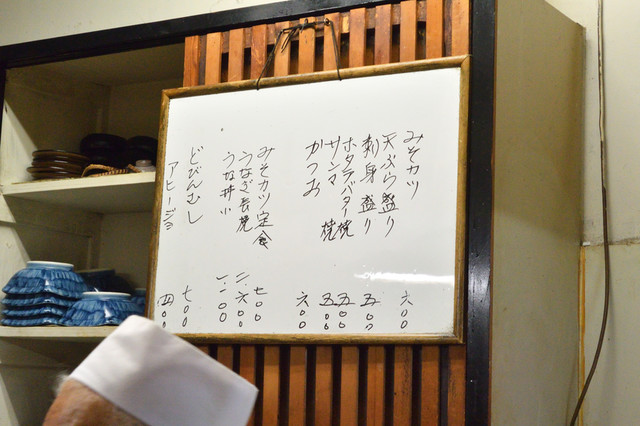 みそカツ 六〇〇
天ぷら盛り
刺身盛り 五〇〇
ホタテバター焼 五〇〇
サンマ焼 五〇〇
かつお 六〇〇
みそカツ定食 七〇〇
うなぎ長焼 二、六〇〇
うな丼小 一、一〇〇
どびんむし 七〇〇
アヒージョ 四〇〇